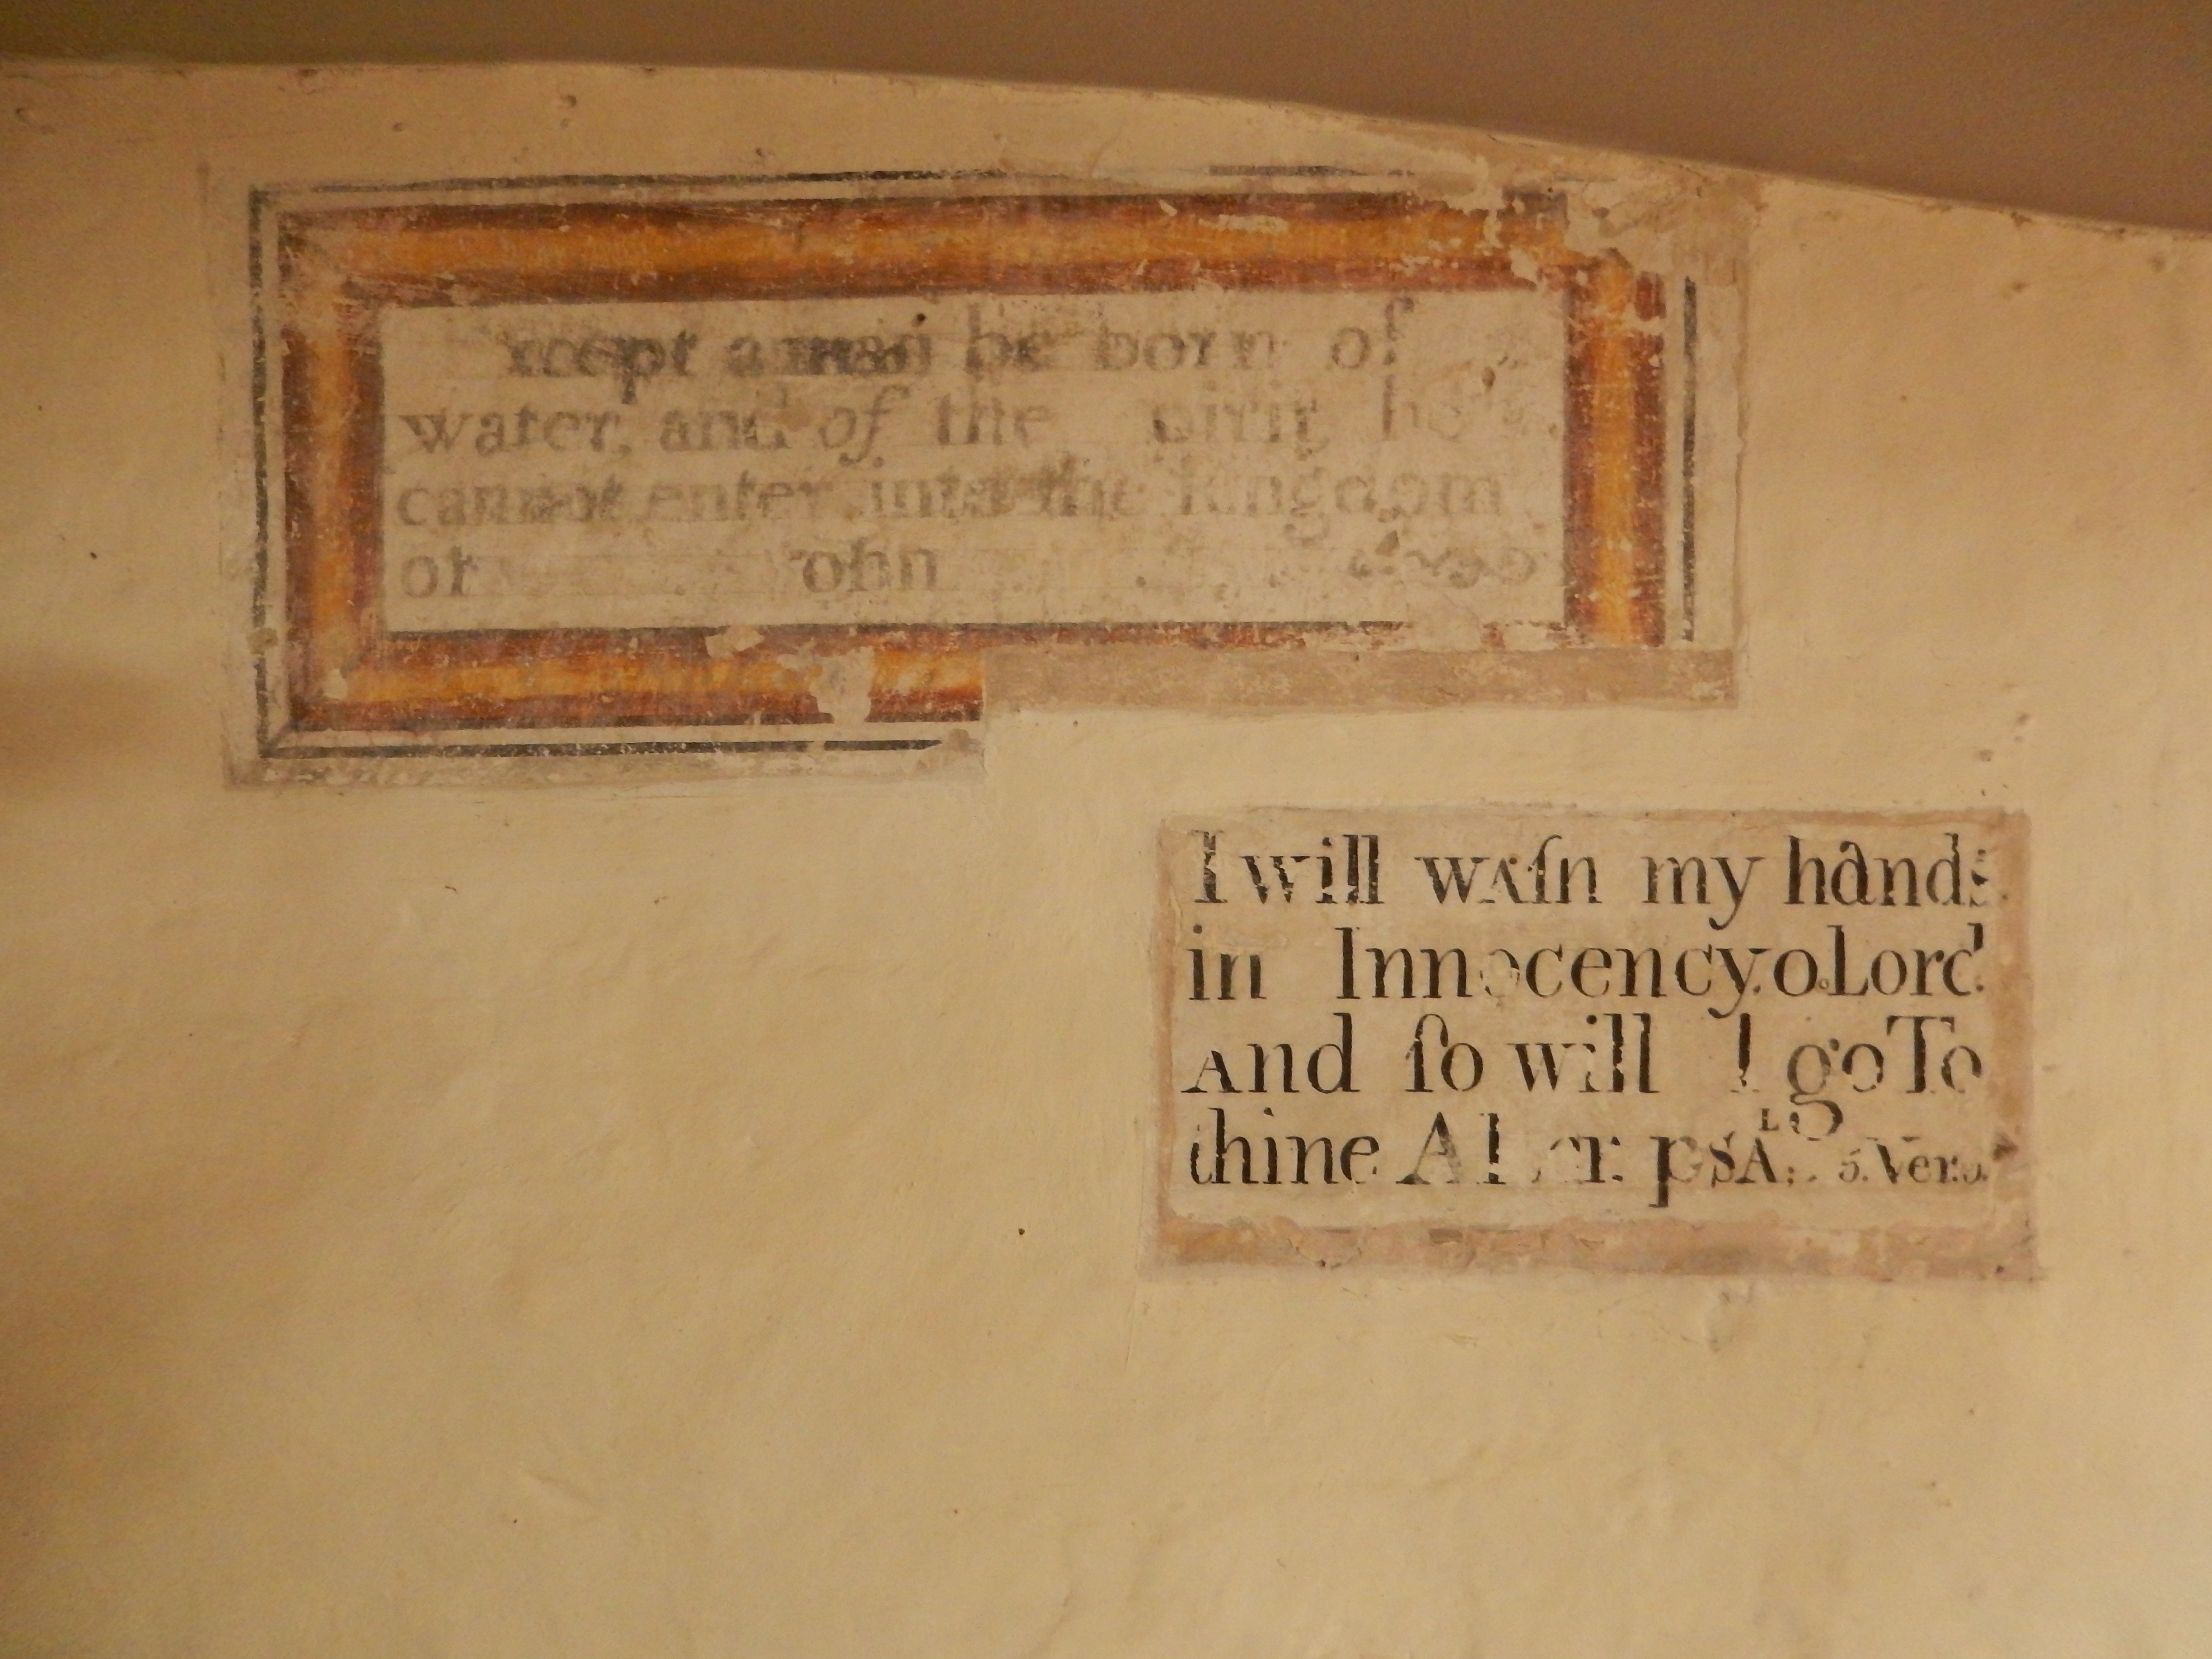 xcept a man be born of
water, and of the pirit he
cannot enter into the kingdom
of ohn
I will waſh my hands
in Innocency o Lord
And ſo will I go To
thine Al er. PSAL 5. Ver.